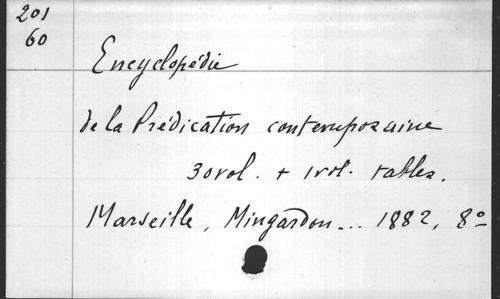 201
60
Encyclopédie
de la Prédication contemporaine
30 vol. + 1 vol. tables.
Marseille, Mingardon... 1882, 8º